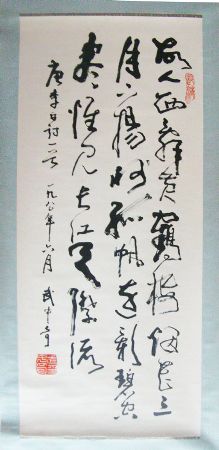 故人西辭黃鶴樓烟花三
月下揚州孤帆遠影碧空
盡惟見長江天際流
唐李白詩一首 一九八〇年六月 武中奇